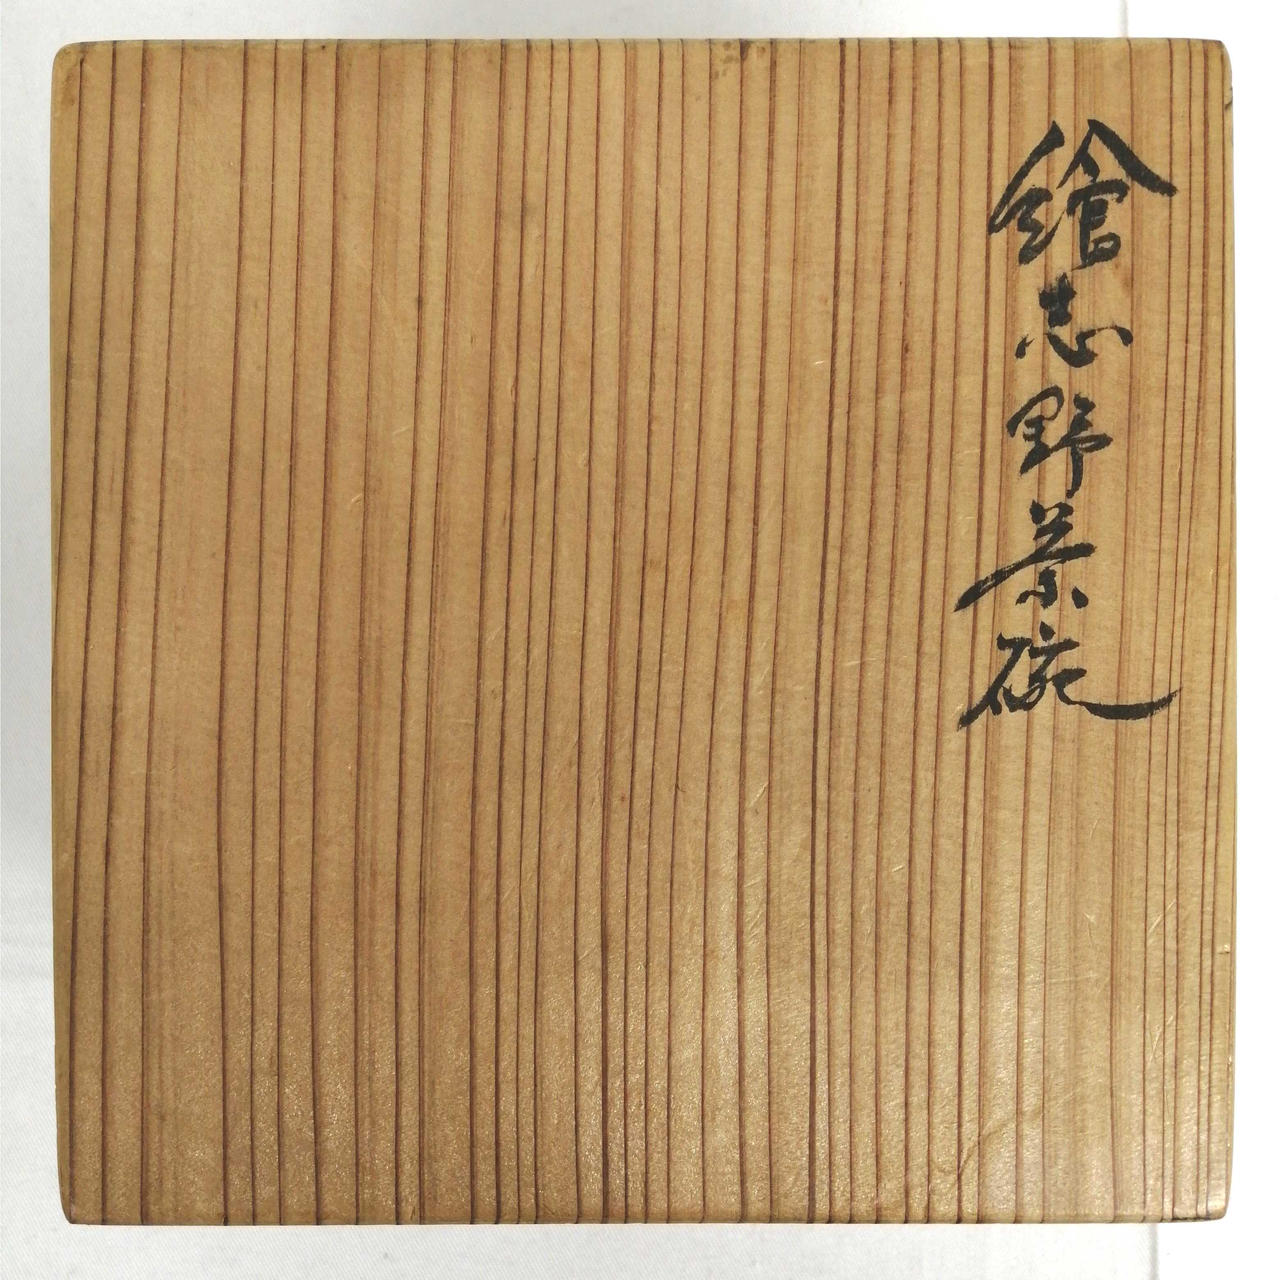 繪志野茶碗